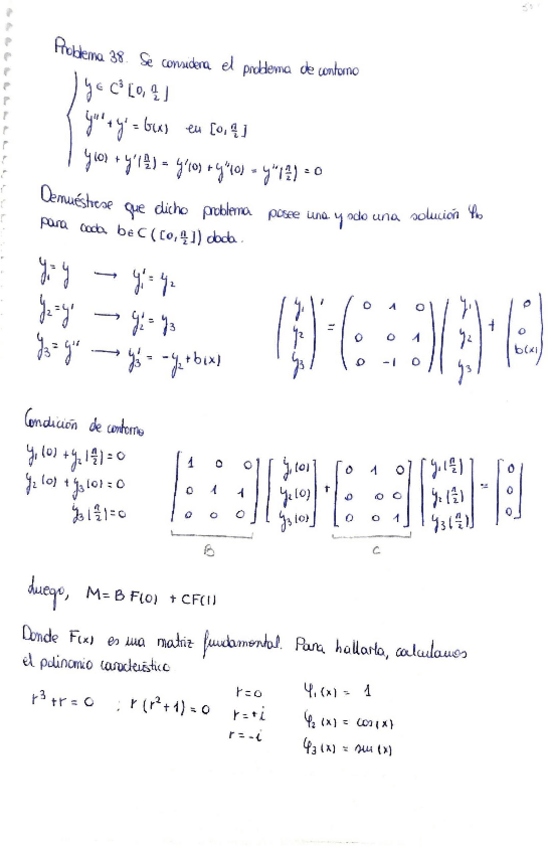 Problema 38. Se considera el problema de contorno
y ∈ C³ [0, π/2]
y''' + y' = b(x) en [0, π/2]
y(0) + y'(π/2) = y'(0) + y''(0) = y''(π/2) = 0
Demuéstrese que dicho problema posee una y solo una solución φb
para cada b ∈ C([0, π/2]) dada.
y₁ = y → y₁' = y₂
y₂ = y' → y₂' = y₃
y₃ = y'' → y₃' = -y₂ + b(x)
(y₁ y₂ y₃)' = (0 1 0 / 0 0 1 / 0 -1 0) (y₁ y₂ y₃) + (0 0 b(x))
Condición de contorno
y₁(0) + y₂(π/2) = 0
y₂(0) + y₃(0) = 0
y₃(π/2) = 0
[1 0 0 / 0 1 1 / 0 0 0] [y₁(0) y₂(0) y₃(0)] + [0 1 0 / 0 0 0 / 0 0 1] [y₁(π/2) y₂(π/2) y₃(π/2)] = [0 0 0]
B C
Luego, M = B F(0) + C F(1)
Donde F(x) es una matriz fundamental. Para hallarla, calculamos
el polinomio característico
r³ + r = 0 ; r(r² + 1) = 0
r = 0
r = +i
r = -i
φ₁(x) = 1
φ₂(x) = cos(x)
φ₃(x) = sen(x)